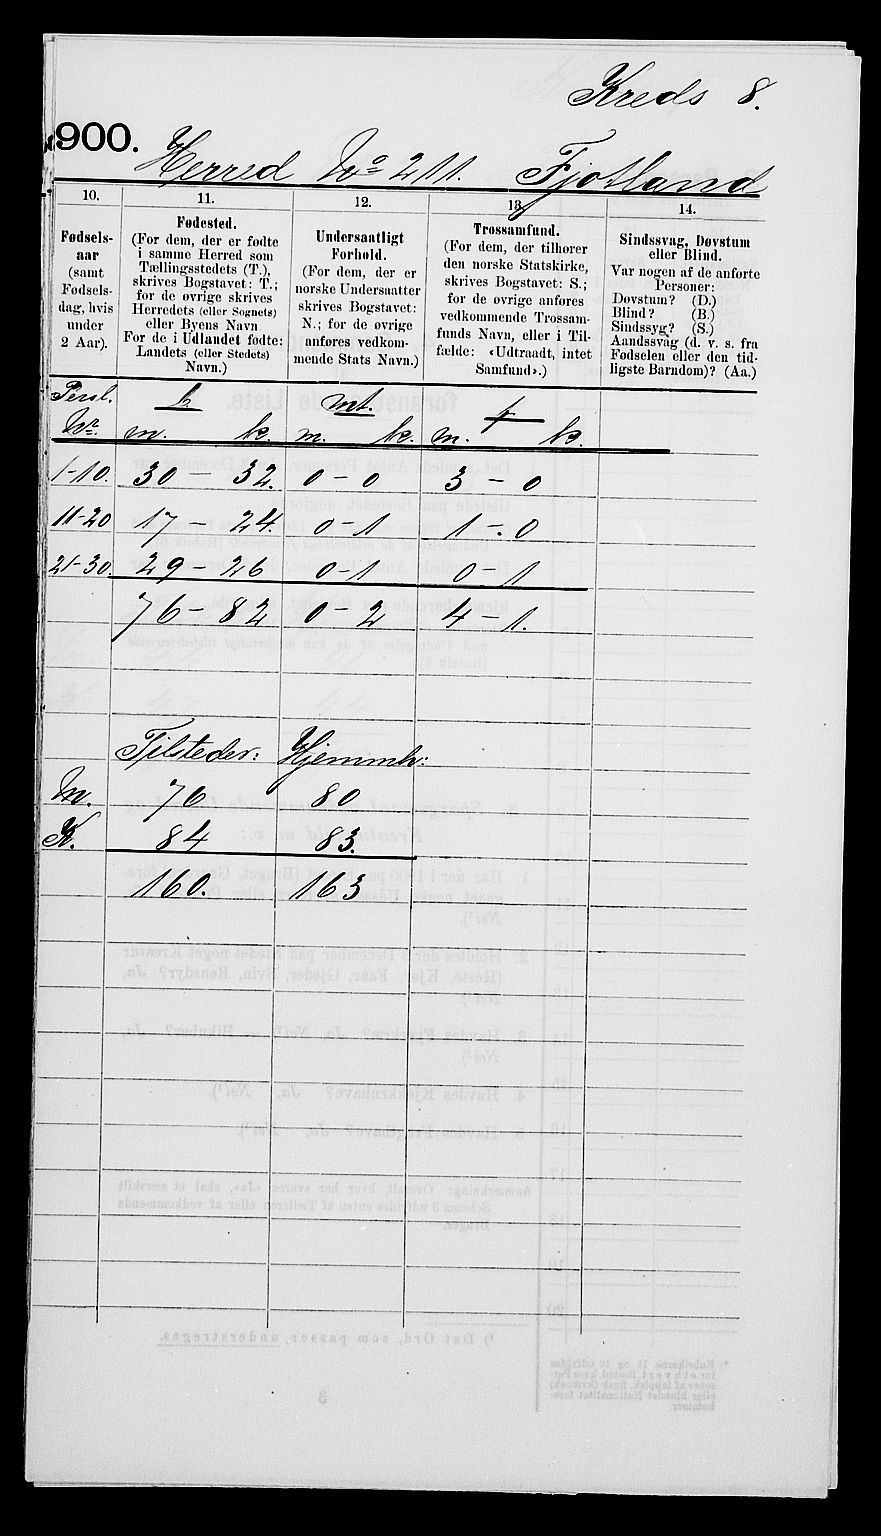 Kreds 8.
900.
Herred No 211. Fjotland
10.
Fødsels-
aar
(samt
Fødsels-
dag, hvis
under
2 Aar).
11.
Fødested.
(For dem, der er fødte
i samme Herred som
Tællingsstedets (T.),
skrives Bogstavet: T.;
for de øvrige skrives
Herredets (eller Sognets)
eller Byens Navn
For de i Udlandet fødte:
Landets (eller Stedets)
Navn.)
12.
Undersaatligt
Forhold.
(For dem, der er
norske Undersaatter
skrives Bogstavet:
N.; for de øvrige
anføres vedkom-
mende Stats Navn.)
13.
Trossamfund.
(For dem, der tilhører
den norske Statskirke,
skrives Bogstavet: S.;
for de øvrige anføres
vedkommende Trossam-
funds Navn, eller i Til-
fælde: «Udtraadt, intet
Samfund».)
14.
Sindssvag, Døvstum
eller Blind.
Var nogen af de anførte
Personer:
Døvstum? (D.)
Blind? (B.)
Sindssyg? (S.)
Aandssvag (d. v. s. fra
Fødselen eller den tid-
ligste Barndom)? (Aa.)
Persl. b. mt. f
Nr. m. k. m. k. m. k.
1-10. 30 - 32. 0-0 3 - 0
11-20 17 - 24. 0-1 1 - 0
21-30. 29 - 26 0-1 0 - 1
76 - 82 0 - 2 4 - 1.
Tilsteder: Hjemmh:
M. 76 80
K. 84 83.
160. 163